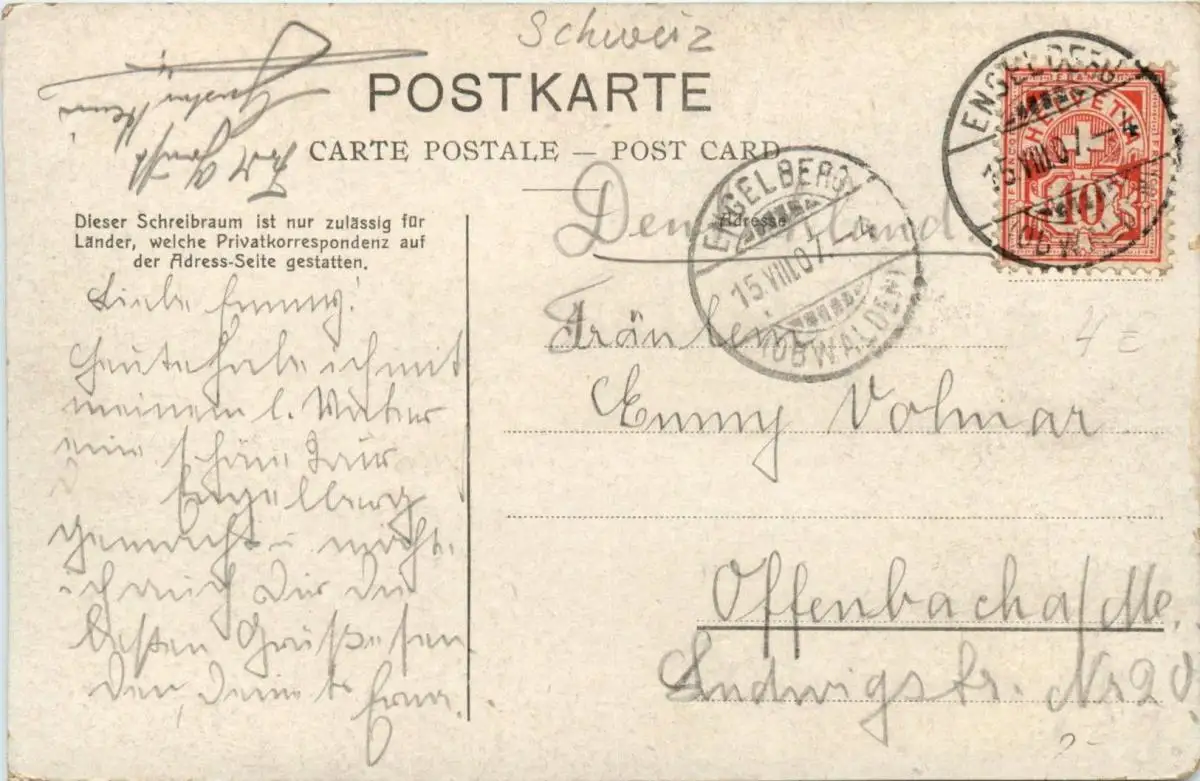 Schweiz
POSTKARTE
CARTE POSTALE — POST CARD
Dieser Schreibraum ist nur zulässig für
Länder, welche Privatkorrespondenz auf
der Adress-Seite gestatten.
Liebe Emmy!
Heute habe ich mit
meinem l. Vater
eine schöne Tour
Engelberg
gemacht u. möchte
ich auch Dir die
besten Grüße sen
den, Deine tr. Erna.
Adresse
Deutschland.
Fräulein
Emmy Volmar
Offenbach a/M.
Ludwigstr. Nr 20
ENGELBERG
15.VIII.07.
(OBWALDEN)
ENGELBERG
15.VIII.07.
FRANCO HELVETIA
10
4 =